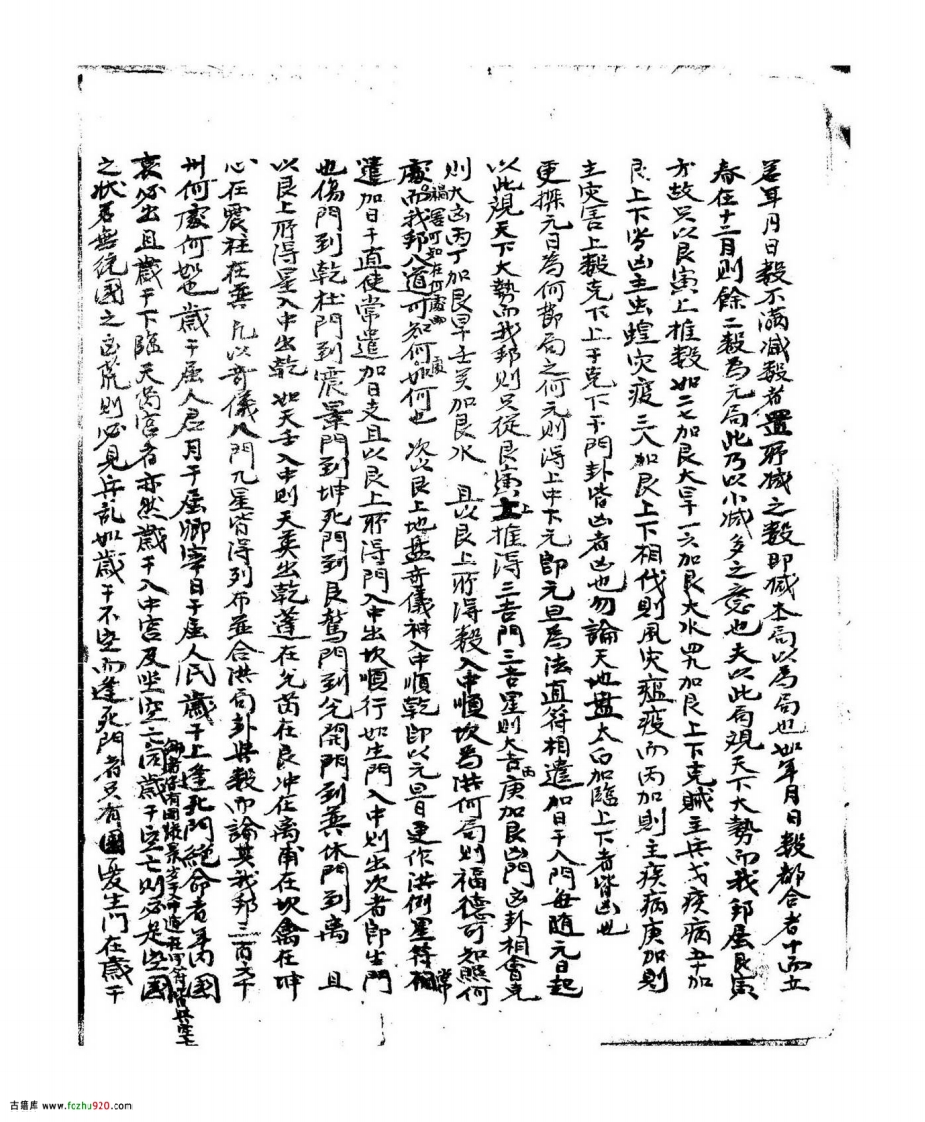 若年月日數不滿減數者置所減之數即減本局以爲局也如年月日數都合者十而立
春在十二月則餘二數爲元局此乃以小減多之意也夫以此局觀天下大勢而我邦屬艮寅
方故只以艮寅上推數如二七加艮大旱一六加艮大水四九加艮上下克賊主兵戈疾病五十加
艮上下皆凶主虫蝗灾疫三八加艮上下相伐則風灾瘟疫而丙加則主疾病庚加則
主灾害上數克下上干克下干門卦皆凶者凶也勿論天地盤太白加臨上下者皆凶也
更探元日爲何節局之何元則得上中下元即元旦爲法直符相遣加日干八門每隨元日起
以此觀天下大勢而我邦則只從艮寅上推得三吉門三吉星則大吉丙庚加艮凶門凶卦相會克
則大凶丙丁加艮旱壬癸加艮水 且以艮上所得數入中順坎爲洪何局則福德可知照何
處禍害可知在何處而我邦八道可知何處如何也 次以艮上地盤奇儀神入中順乾即以元旦日更作洪例星符相常
遣加日干直使常遣加日支且以艮上所得門入中出坎順行如生門入中則出次者即生門
也傷門到乾杜門到震景門到坤死門到艮驚門到兌開門到巽休門到离 且
以艮上所得星入中出乾 如天壬入中則天英出乾蓬在兌芮在艮冲在离甫在坎禽在坤
心在震柱在巽 凡以奇儀八門九星皆得列布並合洪局卦與數而論其我邦三百六十
州何處何如也 歲干屬人君月干屬卿宰日干屬人民歲干上逢死門絕命者年內國
哀必出且歲干下臨天芮宮者亦然歲干入中宮及坐空亡宮歲干空亡則必是空國
之状若無統國之 則必見兵乱如歲干不空而逢死門者只有國憂生門在歲干
古籍库 www.fczhu920.com